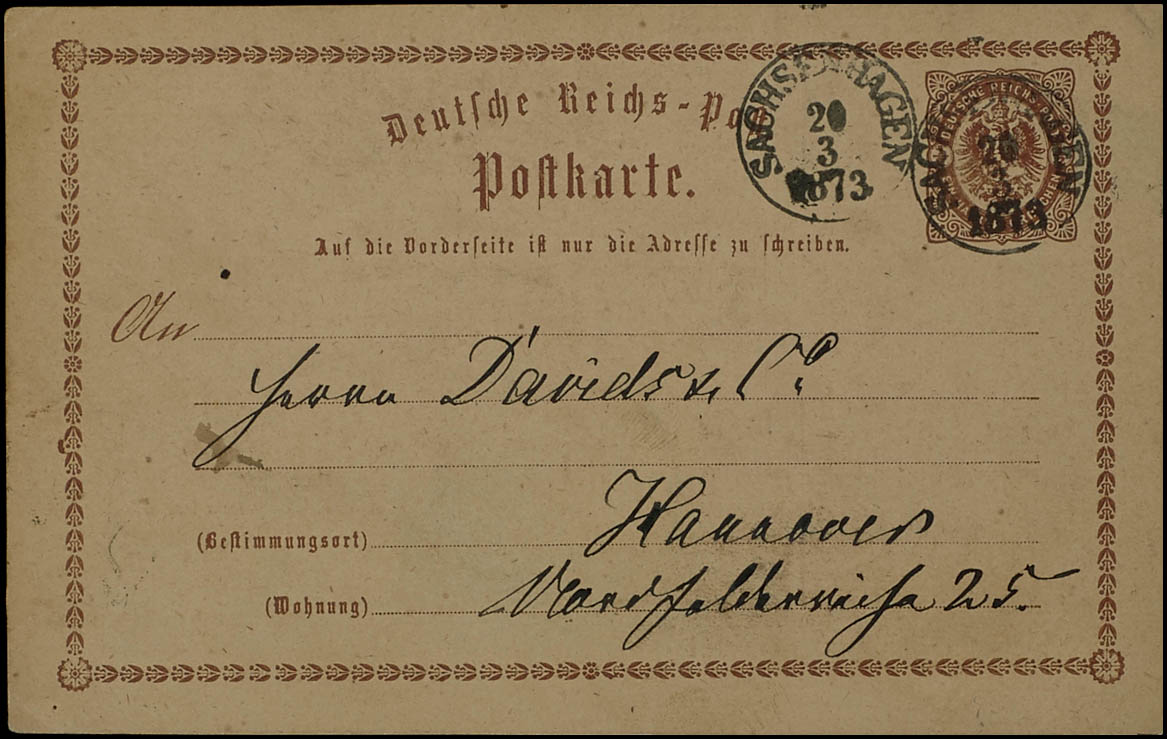 Deutsche Reichs-Po
Postkarte.
Auf die Vorderseite ist nur die Adresse zu schreiben.
SACHSENHAGEN
20
3
1873
DEUTSCHE REICHS-
SACHSENHAGEN
20
3
1873
An
Herrn Davids & Co
Hannover
(Bestimmungsort)
Nordfelderreihe 25.
(Wohnung)